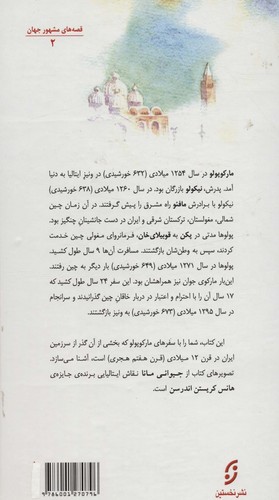 قصه‌های مشهور جهان
۲
مارکوپولو در سال ۱۲۵۴ میلادی (۶۳۲ خورشیدی) در ونیز ایتالیا به دنیا
آمد. پدرش، نیکولو بازرگان بود. در سال ۱۲۶۰ میلادی (۶۳۸ خورشیدی)
نیکولو با برادرش مافئو راه مشرق را پیش گرفتند. در آن زمان چین
شمالی، مغولستان، ترکستان شرقی و ایران در دست جانشینان چنگیز بود.
پولوها مدتی در پکن به قوبیلای‌خان، فرمانروای مغولی چین خدمت
کردند، سپس به وطن‌شان بازگشتند. مسافرت آن‌ها ۹ سال طول کشید.
پولوها در سال ۱۲۷۱ میلادی (۶۴۹ خورشیدی) بار دیگر به چین رفتند.
این‌بار مارکوی جوان نیز همراهشان بود. این سفر ۲۴ سال طول کشید که
۱۷ سال آن را با احترام و اعتبار در دربار خاقان چین گذرانیدند و سرانجام
در سال ۱۲۹۵ میلادی (۶۷۳ خورشیدی) به ونیز بازگشتند.
این کتاب، شما را با سفرهای مارکوپولو که بخشی از آن گذر از سرزمین
ایران در قرن ۱۲ میلادی (قرن هفتم هجری) است، آشنا می‌سازد.
تصویرهای کتاب از جیوانی مانا نقاش ایتالیایی برنده‌ی جایزه‌ی
هانس کریستن اندرسن است.
نشر نخستین
9 786001 270796